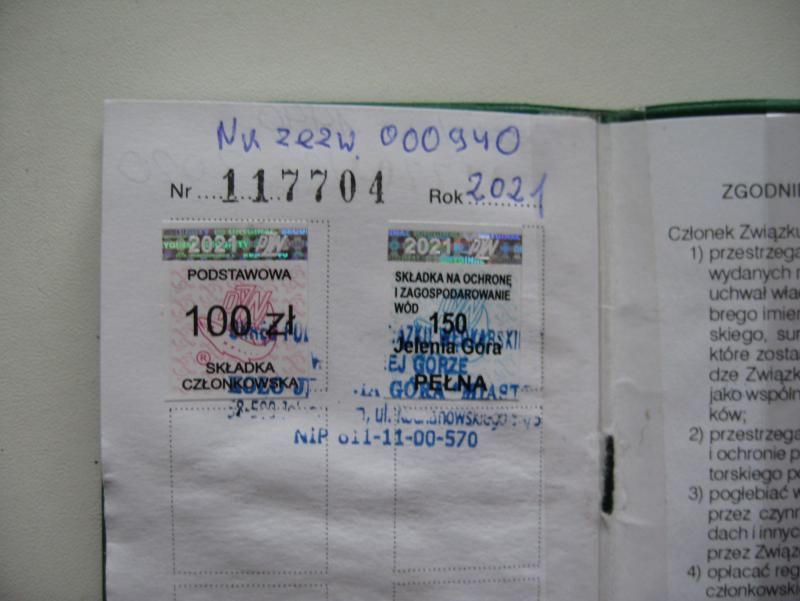 Nr zezw. 000940
Nr 117704 Rok 2021
2021 PZW
PODSTAWOWA
100 zł
SKŁADKA
CZŁONKOWSKA
2021 PZW
SKŁADKA NA OCHRONĘ
I ZAGOSPODAROWANIE
WÓD
150
Jelenia Góra
PEŁNA
NIP 611-11-00-570
ZGODNIE
Członek Związku
1) przestrzega
wydanych
uchwał wła
brego imien
skiego, sur
które zosta
dze Związk
jako wspóln
ków;
2) przestrzega
i ochronie p
torskiego p
3) pogłębiać w
przez czynn
dach i innyc
przez Związ
4) opłacać reg
członkowski